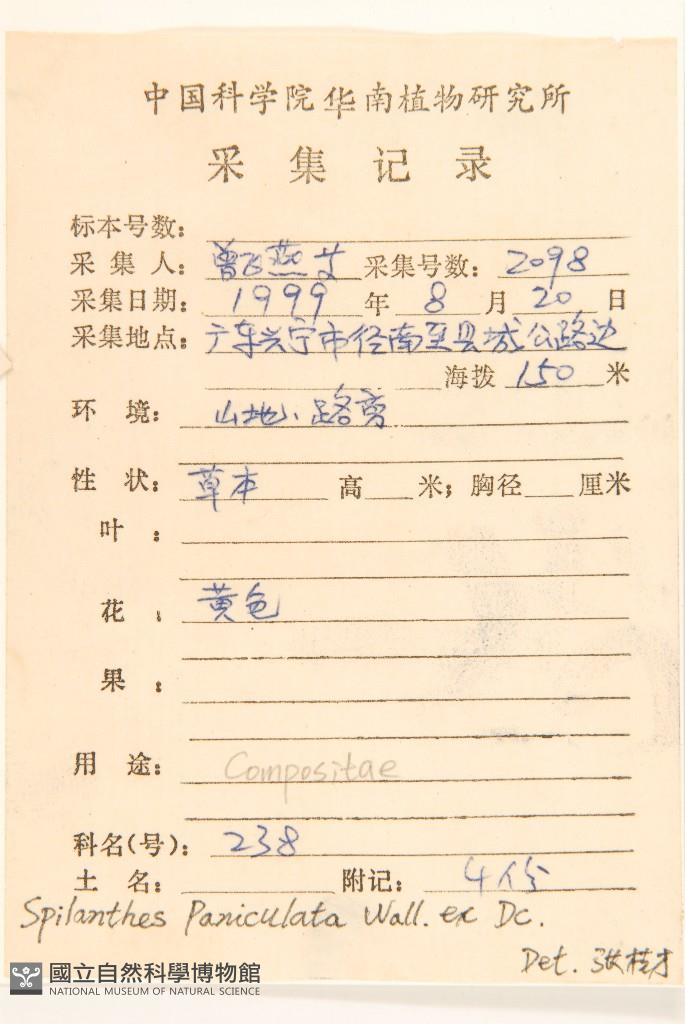 中国科学院华南植物研究所
采集记录
标本号数：
采集人：曾飞燕等 采集号数：2098
采集日期：1999年8月20日
采集地点：广东兴宁市径南至县城公路边
海拨150米
环境：山地、路旁
性状：草本 高 米；胸径 厘米
叶：
花：黄色
果：
用途：Compositae
科名(号)：238
土名： 附记：4份
Spilanthes Paniculata Wall. ex Dc.
Det. 张桂才
國立自然科學博物館
NATIONAL MUSEUM OF NATURAL SCIENCE